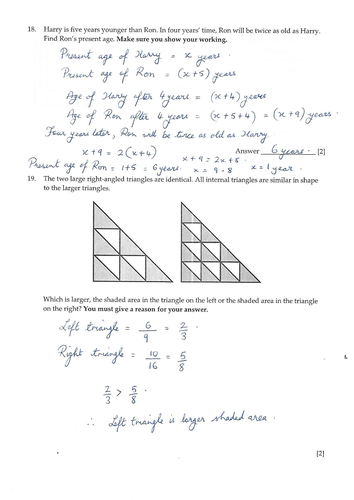 18. Harry is five years younger than Ron. In four years' time, Ron will be twice as old as Harry.
Find Ron's present age. Make sure you show your working.
Present age of Harry = x years.
Present age of Ron = (x+5) years
Age of Harry after 4 years = (x+4) years
Age of Ron after 4 years = (x+5+4) = (x+9) years.
Four years later, Ron will be twice as old as Harry.
x+9 = 2(x+4)
Answer 6 years. [2]
x+9 = 2x+8.
Present age of Ron = 1+5 = 6 years.
x = 9-8
x = 1 year.
19. The two large right-angled triangles are identical. All internal triangles are similar in shape
to the larger triangles.
Which is larger, the shaded area in the triangle on the left or the shaded area in the triangle
on the right? You must give a reason for your answer.
Left triangle = 6/9 = 2/3.
Right triangle = 10/16 = 5/8
2/3 > 5/8.
∴ Left triangle is larger shaded area.
[2]